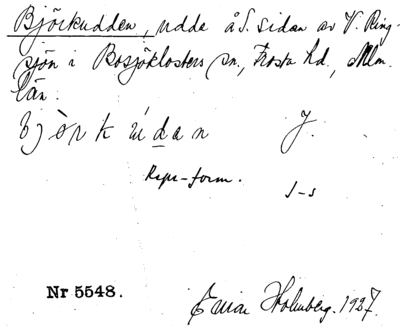 Björkudden, udde å S. sidan av V. Ring-
sjön i Bosjöklosters sn., Frosta hd., Mlm.
län.
bjòrkúdan J.
Reps-form. S-s
Nr 5548. Einar Holmberg. 1927.